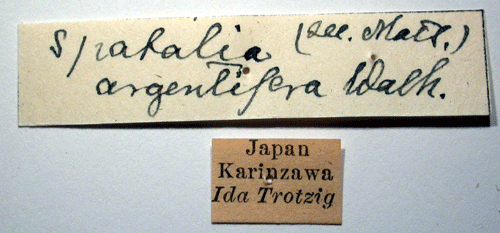 Spatalia (sec. Mats.)
argentifera Walk.
Japan
Karinzawa
Ida Trotzig